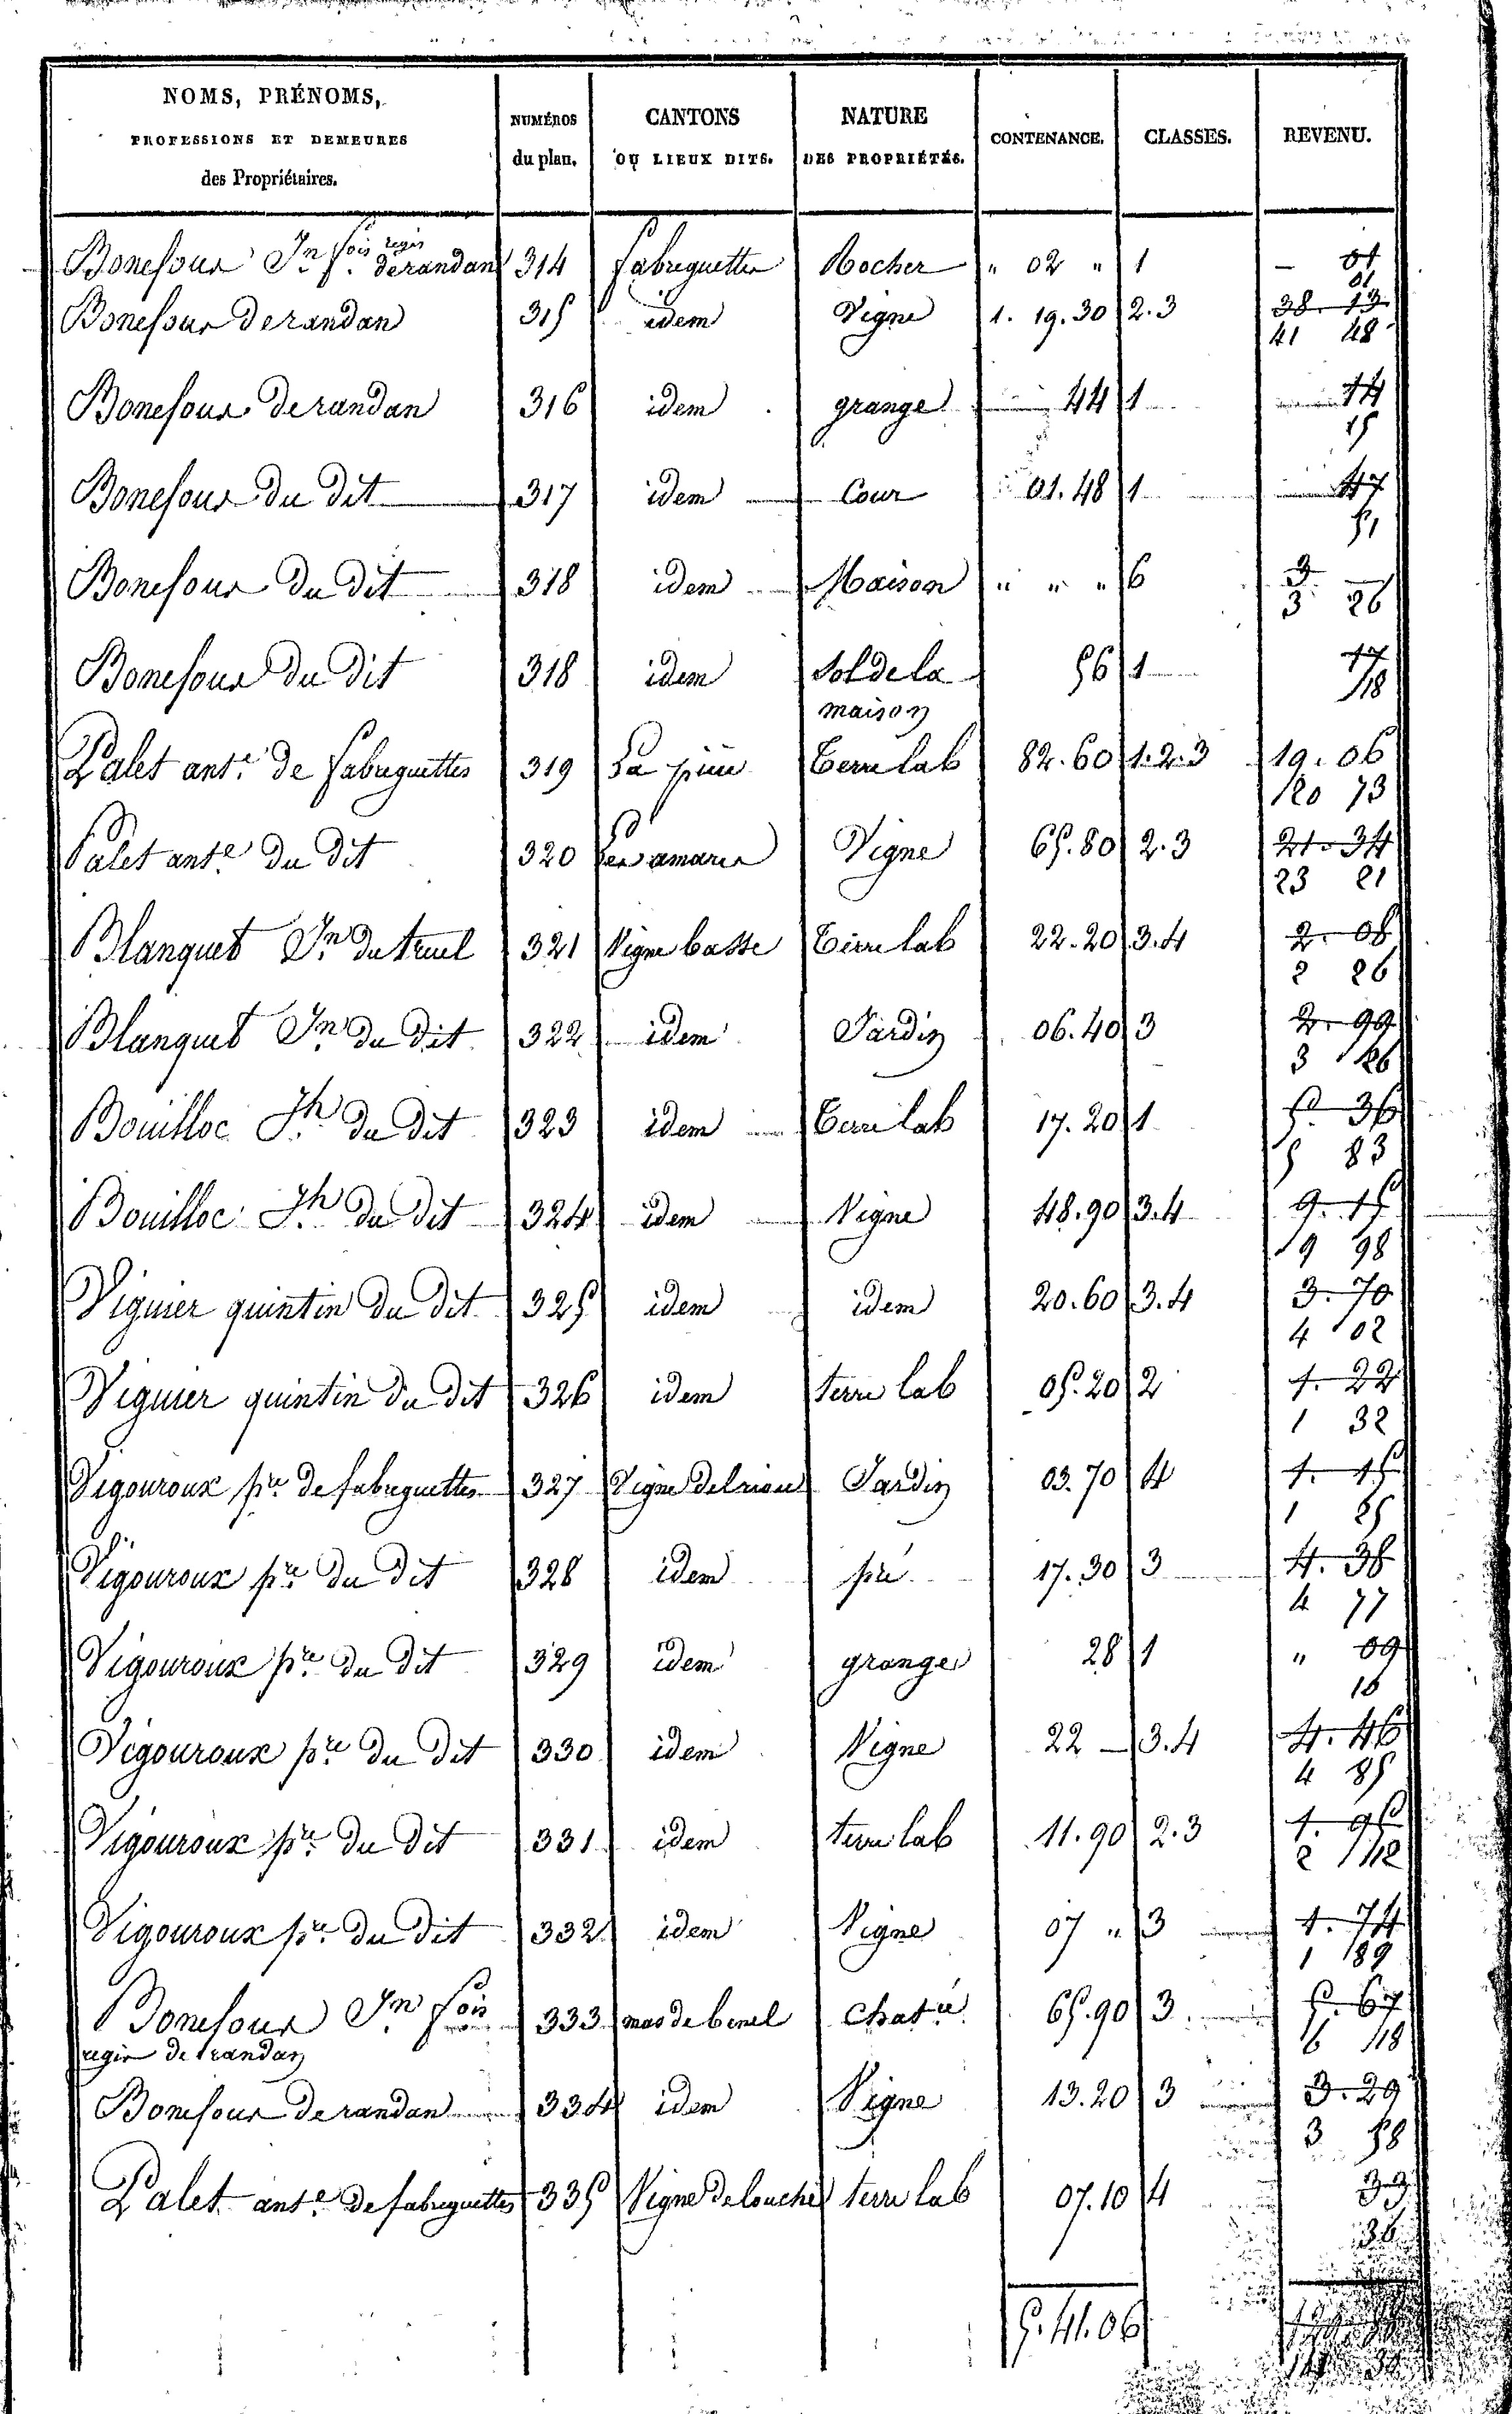 NOMS, PRÉNOMS, PROFESSIONS ET DEMEURES des Propriétaires. NUMÉROS du plan. CANTONS OU LIEUX DITS. NATURE DES PROPRIÉTÉS. CONTENANCE. CLASSES. REVENU.
Bonefour Jn fois regis de randan 314 fabreguettes Rocher " 02 " 1 – 01
01
Bonefour de randan 315 idem Vigne 1. 19. 30 2.3 38. 13
41 48
Bonefour de randan 316 idem grange 44 1 14
15
Bonefour du dit 317 idem Cour 01. 48 1 47
51
Bonefour du dit 318 idem Maison " " " 6 3 –
3 26
Bonefour du dit 318 idem Sol de la 56 1 17
maison 18
Palet ante de fabreguettes 319 82. 60 1.2.3 19. 06
20 73
Palet ante du dit 320 Les amares Vigne 65. 80 2.3 21. 34
23 21
Blanquet Jn du truel 321 Vigne basse Terre lab 22. 20 3.4 2. 08
2 26
Blanquet Jn du dit 322 idem Jardin 06. 40 3 2. 99
3 26
Bouilloc Jh du dit 323 idem Terre lab 17. 20 1 5. 36
5 83
Bouilloc Jh du dit 324 idem Vigne 48. 90 3.4 9. 15
9 98
Viguier quintin du dit 325 idem idem 20. 60 3.4 3. 70
4 02
Viguier quintin du dit 326 idem terre lab 05. 20 2 1. 22
1 32
Vigouroux pre de fabreguettes 327 Vigne del riou Jardin 03. 70 4 1. 15
1 25
Vigouroux pre du dit 328 idem pré 17. 30 3 4. 38
4 77
Vigouroux pre du dit 329 idem grange 28 1 " 09
10
Vigouroux pre du dit 330 idem Vigne 22 – 3.4 4. 46
4 85
Vigouroux pre du dit 331 idem terre lab 11. 90 2.3 1. 95
2 12
Vigouroux pre du dit 332 idem Vigne 07 " 3 1. 74
1 89
Bonefour Jn fois 333 mas de benel chat.ie 65. 90 3 5. 67
regis de randan 6 18
Bonefour de randan 334 idem Vigne 13. 20 3 3. 29
3 58
Palet ante de fabreguettes 335 Vigne de louche terre lab 07. 10 4 33
36
5. 41. 06